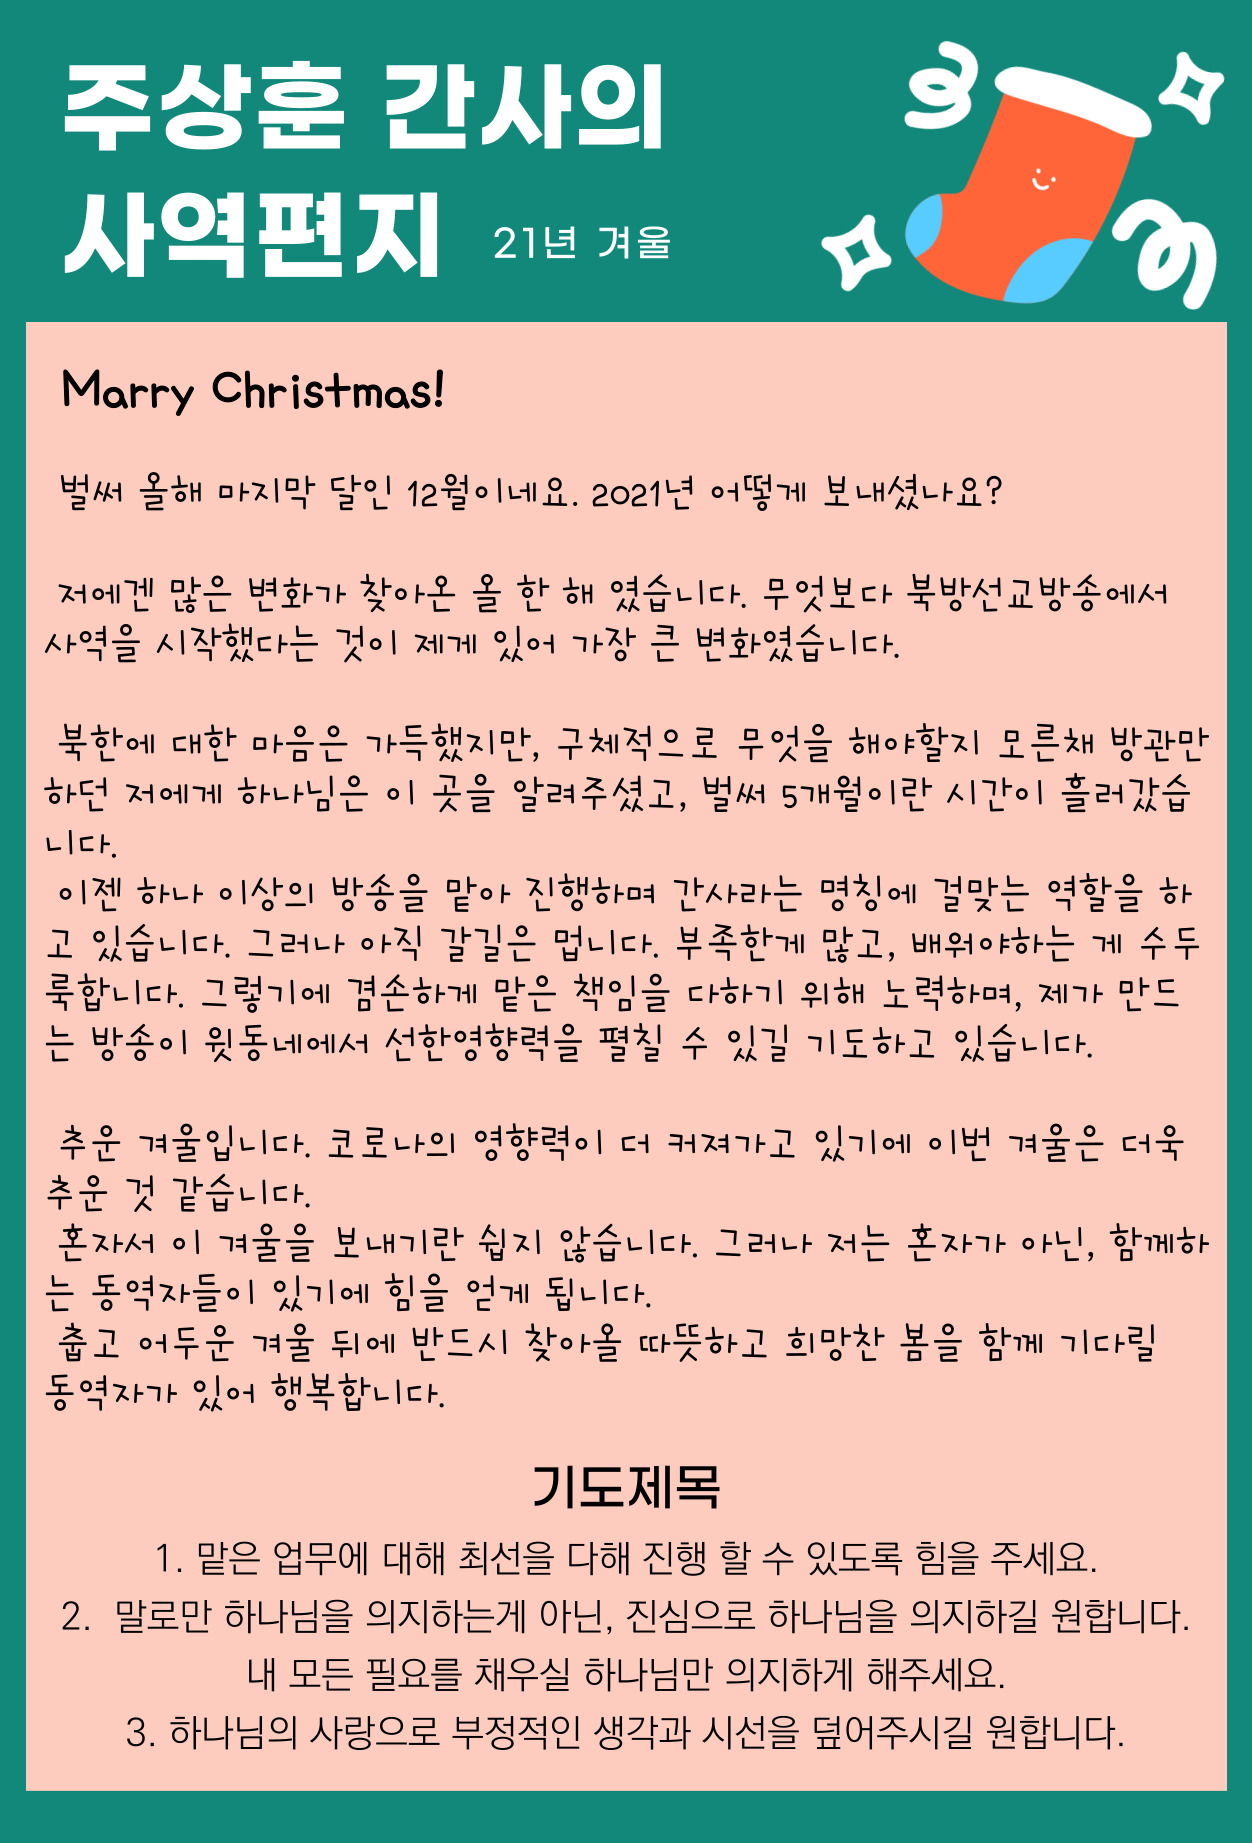 주상훈 간사의
사역편지 21년 겨울
Marry Christmas!
벌써 올해 마지막 달인 12월이네요. 2021년 어떻게 보내셨나요?
저에겐 많은 변화가 찾아온 올 한 해 였습니다. 무엇보다 북방선교방송에서
사역을 시작했다는 것이 제게 있어 가장 큰 변화였습니다.
북한에 대한 마음은 가득했지만, 구체적으로 무엇을 해야할지 모른채 방관만
하던 저에게 하나님은 이 곳을 알려주셨고, 벌써 5개월이란 시간이 흘러갔습
니다.
이젠 하나 이상의 방송을 맡아 진행하며 간사라는 명칭에 걸맞는 역할을 하
고 있습니다. 그러나 아직 갈길은 멉니다. 부족한게 많고, 배워야하는 게 수두
룩합니다. 그렇기에 겸손하게 맡은 책임을 다하기 위해 노력하며, 제가 만드
는 방송이 윗동네에서 선한영향력을 펼칠 수 있길 기도하고 있습니다.
추운 겨울입니다. 코로나의 영향력이 더 커져가고 있기에 이번 겨울은 더욱
추운 것 같습니다.
혼자서 이 겨울을 보내기란 쉽지 않습니다. 그러나 저는 혼자가 아닌, 함께하
는 동역자들이 있기에 힘을 얻게 됩니다.
춥고 어두운 겨울 뒤에 반드시 찾아올 따뜻하고 희망찬 봄을 함께 기다릴
동역자가 있어 행복합니다.
기도제목
1. 맡은 업무에 대해 최선을 다해 진행 할 수 있도록 힘을 주세요.
2. 말로만 하나님을 의지하는게 아닌, 진심으로 하나님을 의지하길 원합니다.
내 모든 필요를 채우실 하나님만 의지하게 해주세요.
3. 하나님의 사랑으로 부정적인 생각과 시선을 덮어주시길 원합니다.